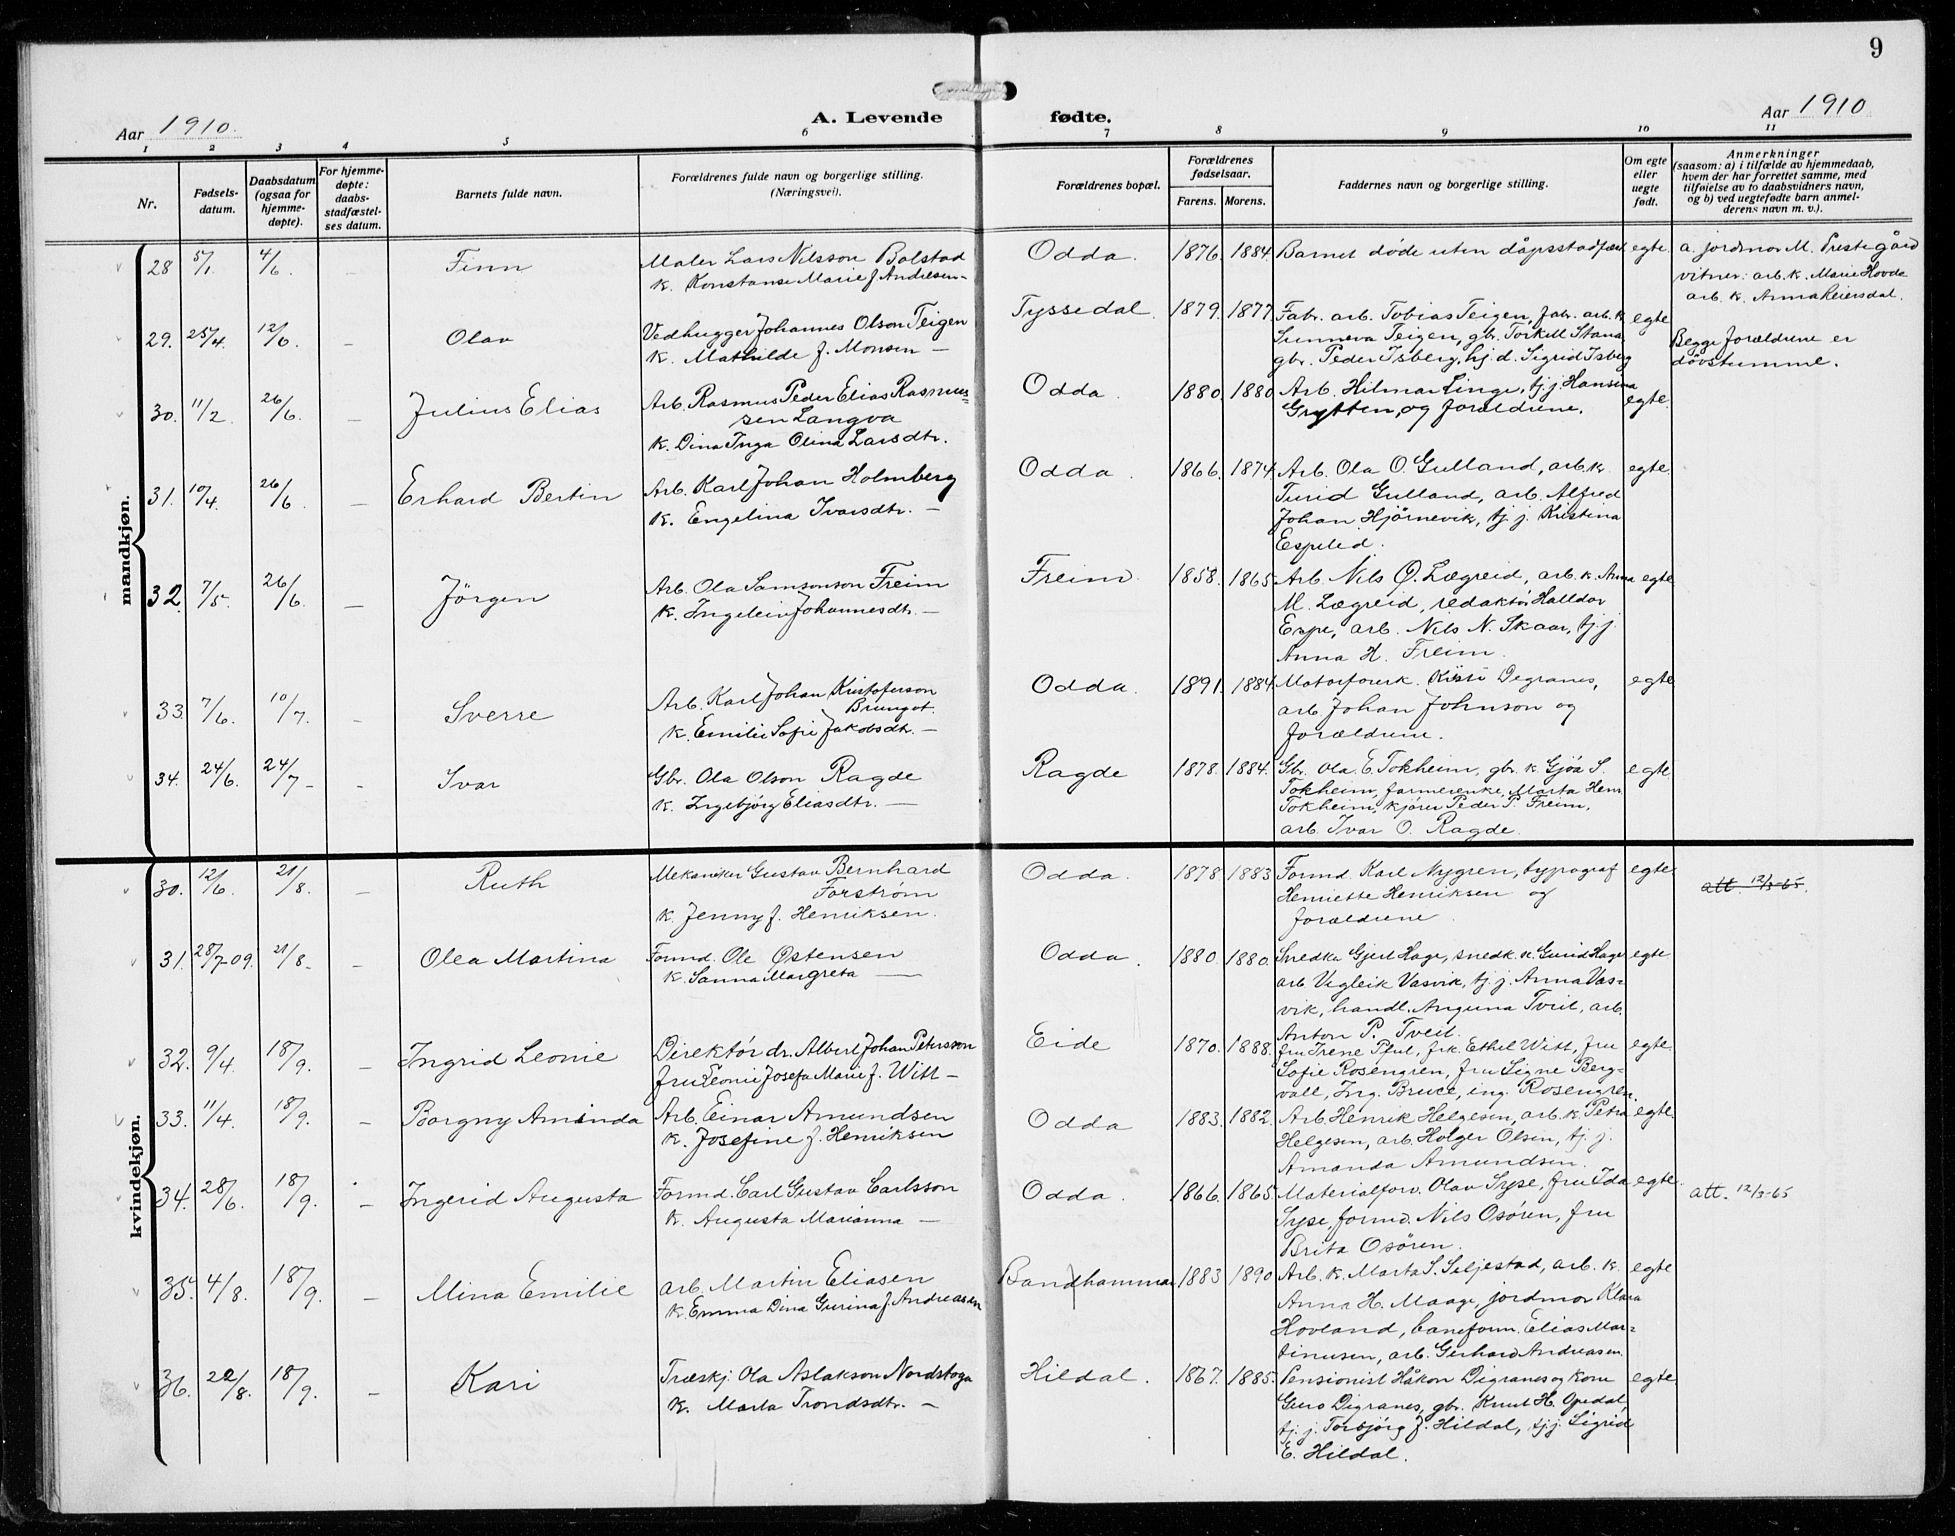 9
Aar 1910.
A. Levende fødte.
Aar 1910
1 2 3 4 5 6 7 8 9 10 11
Nr.
Fødsels-
datum.
Daabsdatum
(ogsaa for
hjemme-
døpte).
For hjemme-
døpte:
daabs-
stadfæstel-
ses datum.
Barnets fulde navn.
Forældrenes fulde navn og borgerlige stilling.
(Næringsvei).
Forældrenes bopæl.
Forældrenes
fødselsaar.
Farens. Morens.
Faddernes navn og borgerlige stilling.
Om egte
eller
uegte
født.
Anmerkninger
(saasom: a) i tilfælde av hjemmedaab,
hvem der har forrettet samme, med
tilføielse av to daabsvidners navn,
og b) ved uegtefødte barn anmel-
derens navn m. v.).
mandkjøn.
28 5/1 4/6 – Finn
Maler Lars Nilsson Bolstad
k. Konstanse Marie f Andresen –
Odda. 1876. 1884.
Barnet døde uten dåpsstadfæst.
egte.
a. jordmor M. Prestegård
vitner: arb. k. Marie Hovda
arb. k. Anna Reiersdal.
29. 25/4. 12/6 – Olav
Vedhugger Johannes Olson Teigen
k. Mathilde f. Monsen –
Tyssedal. 1879. 1877.
Fabr. arb. Tobias Teigen, fabr. arb. k
Sunneva Teigen, gbr. Torkell Stana
gbr. Peder Isberg, hj. d. Sigrid Isberg
egte
Begge forældrene er
døvstumme.
30. 11/2. 26/6. – Julius Elias
Arb. Rasmus Peder Elias Rasmus=
sen Langva
k. Dina Inga Olina Larsdtr.
Odda. 1880. 1880.
Arb. Hilmar Linge, tj. j. Hansina
Grytten, og forældrene.
egte.
31. 10/4. 26/6. – Erhard Bertin
Arb. Karl Johan Holmberg
k. Engelina Ivarsdtr. –
Odda. 1866. 1874.
Arb. Ola O. Gulland, arb. k.
Turid Gulland, arb. Alfred
Johan Hjørnevik, tj. j. Kristina
Espeled.
egte.
32. 7/5. 26/6. – Jörgen
Arb. Ola Samsonson Freim
k. Ingeleiv Johannesdtr. –
Freim. 1858. 1865.
Arb. Nils O. Lægreid, arb. k. Anna
M. Lægreid, redaktör Halldor
Espe, arb. Nils N. Skaar, tj. j.
Anna H. Freim.
egte.
33. 7/6. 10/7. – Sverre
Arb. Karl Johan Kristoferson
Brungot.
k. Emilie Sofie Jakobsdtr. –
Odda. 1891. 1884.
Motorforerk. Kirsti Degranes,
arb Johan Johnson og
forældrene.
egte
34. 24/6. 24/7 – – Ivar
Gbr. Ola Olson Ragde
k. Ingebjörg Eliasdtr. –
Ragde 1878. 1884.
Gbr. Ola. E. Tokheim, gbr. k. Gjøa S.
Tokheim, farmerenke, Marta Henr.
Tokheim, kjører Peder P. Freim,
arb. Ivar O. Ragde.
egte.
kvindekjøn.
30. 12/6. 21/8. – Ruth
Mekaniker Gustav Bernhard
Forström
k. Jenny f. Henriksen.
Odda. 1878. 1883.
Formd. Karl Nygren, typograf
Henriette Henriksen og
forældrene.
egte.
att 12/3-65.
31. 28/7-09. 21/8. – Olea Martina
Formd. Ole Ostensen
k. Sanna Margreta –
Odda. 1880. 1880.
Snedker Gjert Hage, snedk. k. Gurid Hage
arb. Vigleik Vasvik, tj. j. Anna Vas=
vik, handl. Anguna Tveit, arb.
Anton P. Tveit.
egte
32. 9/4. 18/9. – Ingrid Leonie
Direktör dr. Albert Johan Petersson
fru Leonie Josefa Marie f. Witt –
Eide 1870. 1888.
fru Irene Pful, frk. Ethel Witt, fru
Sofie Rosengren, fru Signe Berg=
vall, Ing. Bruce, ing. Rosengren.
egte.
33. 11/4. 18/9. – Borgny Aminda
Arb. Einar Amundsen
k. Josefine f. Henriksen
Odda 1883. 1882.
Arb. Henrik Helgesen, arb. k. Petra
Helgesen, arb. Holger Olsen, tj. j.
Amanda Amundsen.
egte.
34. 28/6. 18/9. – Ingerid Augusta
Formd. Carl Gustav Carlsson
k. Augusta Marianna –
Odda. 1866. 1865.
Materialforv. Olav Syse, fru Ida
Syse, formd. Nils Osören, fru
Brita Osören.
egte.
att. 12/3-65
35. 4/8. 18/9. – Mina Emilie
arb. Martin Eliasen
k. Emma Dina Gurina f. Andreasen
Bandhammar 1883 1890
Arb. k. Marta S. Seljestad, arb. k.
Anna H. Maage, jordmor Klara
Hovland, baneform. Elias Mar=
tinusen, arb. Gerhard Andreasen.
egte
36. 22/8. 18/9. – Kari
Træskj. Ola Aslakson Nordstoga
k. Marta Trondsdtr. –
Hildal. 1867. 1885.
Pensionist Håkon Digranes og kone
Guro Digranes, gbr. Knut H. Opedal,
tj. j. Torbjörg J. Hildal, tj. j. Sigrid
E. Hildal.
egte.